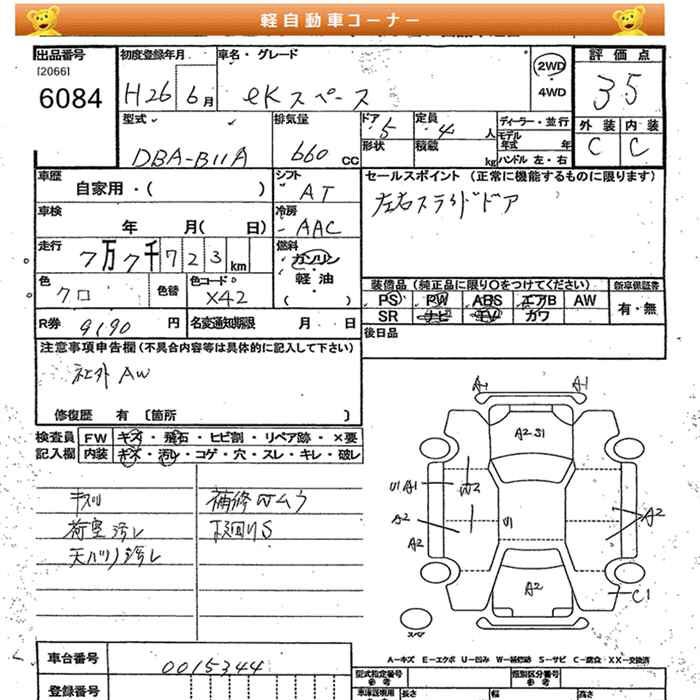 軽自動車コーナー
出品番号
[2066]
6084
初度登録年月
H26 6月
車名・グレード
eKスペース
2WD
4WD
評価点
3 5
外装 内装
C C
型式
DBA-B11A
排気量
660 CC
ドア 5
形状
定員 4 人
積載 kg
ディーラー・並行
モデル年式 年
ハンドル 左・右
車歴
自家用・( )
シフト
AT
セールスポイント (正常に機能するものに限ります)
左右スライドドア
車検
年 月( 日)
冷房
AAC
走行
7万7千723km
燃料
ガソリン
軽油
( )
色
クロ
色替
色コード
X42
装備品 (純正品に限り○をつけてください)
新車保証書
PS PW ABS エアB AW
SR ナビ TV カワ
有・無
R券 9190 円
名変通知期限 月 日
後日品
注意事項申告欄 (不具合内容等は具体的に記入して下さい)
社外AW
修復歴 有 〔箇所 〕
検査員 FW キズ・飛石・ヒビ割・リペア跡・×要
記入欄 内装 キズ・汚レ・コゲ・穴・スレ・キレ・破レ
キズリ
補修ムラ
荷室汚レ
下廻りS
天バリ汚レ
A1 A1
A2 S1
U1 A1
W2
A2
U1
A2
A2
A2
C1
スペア
A−キズ E−エクボ U−凹み W−補修跡 S−サビ C−腐食 XX−交換済
車台番号
0015344
登録番号
型式指定番号
類別区分番号
参考
長さ 幅 高さ